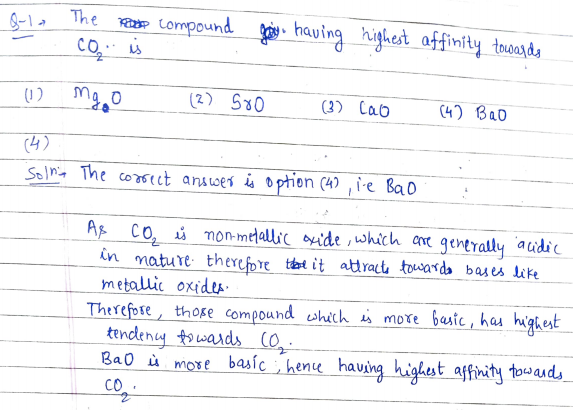 Q-1→ The compound having highest affinity towards
CO₂ is
(1) MgO (2) SrO (3) CaO (4) BaO
(4)
Soln:→ The correct answer is option (4), i.e BaO
As CO₂ is non-metallic oxide, which are generally acidic
in nature. therefore it attracts towards bases like
metallic oxides.
Therefore, those compound which is more basic, has highest
tendency towards CO₂.
BaO is more basic, hence having highest affinity towards
CO₂.